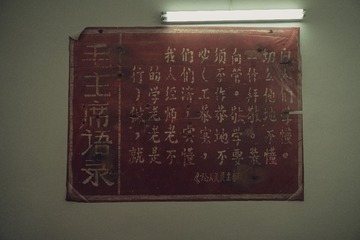 毛主席语录
我们必须向一切内
行的人们(不管什么人
)学经济工作。拜他们
作老师,恭恭敬敬地学
,老老实实地学。不懂
就是不懂,不要装懂。